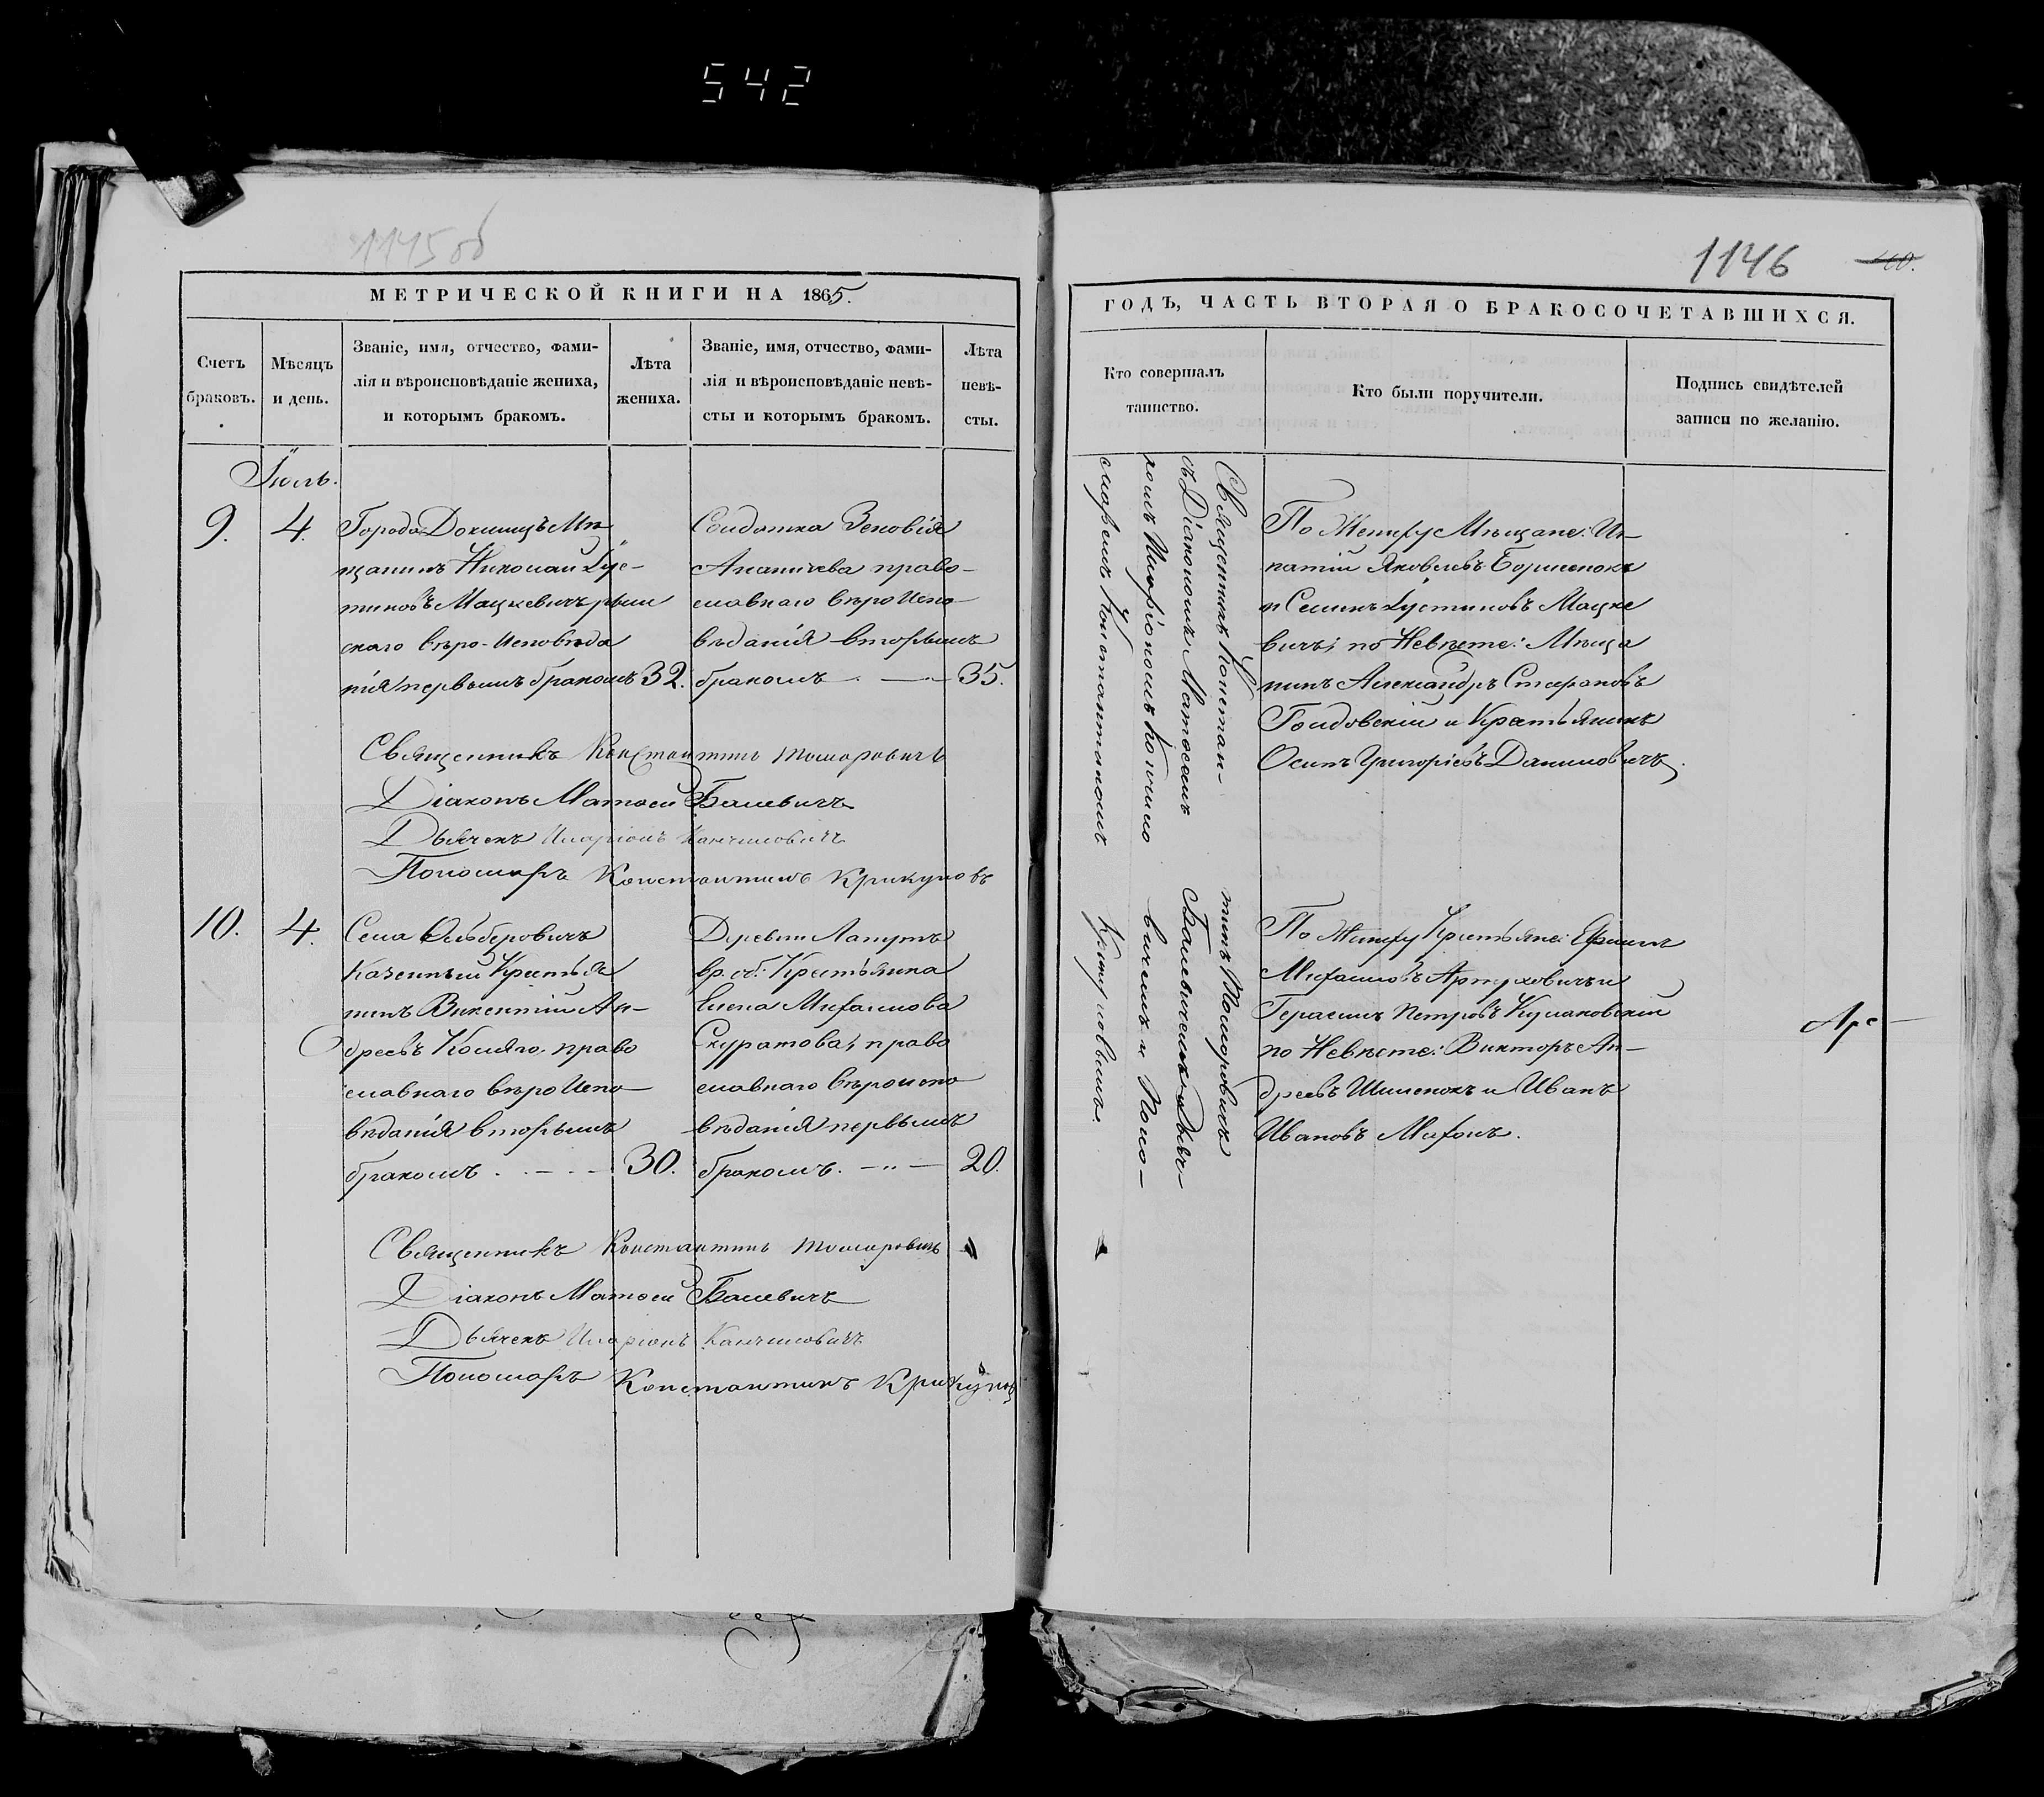 542
1145 об
МЕТРИЧЕСКОЙ КНИГИ НА 1865.
Счетъ браковъ.
Мѣсяцъ и день.
Званіе, имя, отчество, фами-
лія и вѣроисповѣданіе жениха,
и которымъ бракомъ.
Лѣта
жениха.
Званіе, имя, отчество, фами-
лія и вѣроисповѣданіе невѣ-
сты и которымъ бракомъ.
Лѣта
невѣ-
сты.
Іюль.
9.
4.
Города Докшицъ Мѣ
щанинъ Николай Іус-
тиновъ Мацкевичъ рим
скаго вѣро-Исповѣда
нія первымъ бракомъ 32.
Солдатка Зеновія
Ананичева право-
славнаго вѣроИспо-
вѣданія вторымъ
бракомъ 35.
Священникъ Константинъ Томаровичъ
Діаконъ Матѳей Балевичъ
Дьячекъ Иларіонъ Канчиловичъ
Пономарь Константинъ Крикуновъ
10.
4.
Села
Казенный Крестья
нинъ Викентій Ан-
дреевъ Коляго, право
славнаго вѣроИспо-
вѣданія вторымъ
бракомъ 30.
Деревни Лапутъ
вр. об: Крестьянка
Елена Михайлова
Скуратова, право
славнаго вѣроиспо
вѣданія первымъ
бракомъ. 20.
Священникъ Константинъ Томаровичъ
Діаконъ Матѳей Балевичъ
Дьячекъ Иларіонъ Канчиловичъ
Пономарь Константинъ Крикуновъ
1146
ГОДЪ, ЧАСТЬ ВТОРАЯ О БРАКОСОЧЕТАВШИХСЯ.
Кто совершалъ
таинство.
Кто были поручители.
Подпись свидѣтелей
записи по желанію.
Священникъ Констан-
тинъ Томаровичъ
съ Діакономъ Матѳеемъ
Балевичемъ и Дьяч-
комъ Иларіономъ Кончило
вичемъ и Поно-
маремъ Константиномъ
Крикуновымъ.
По Жениху Мѣщане: Иг-
натій Яковлевъ Борисенокъ
и Семенъ Іустиновъ Мацке
вичъ; по Невѣсте: Мѣща
нинъ Александръ Стефановъ
Голдовскій и Крестьянинъ
Осипъ Григорьевъ Даниловичъ.
По Жениху Крестьяне: Ефимъ
Михайловъ Артуховичъ и
Герасимъ Петровъ Кулаковскій
по Невѣсте: Викторъ Ан-
дреевъ Шиленокъ и Иванъ
Ивановъ Махонъ.